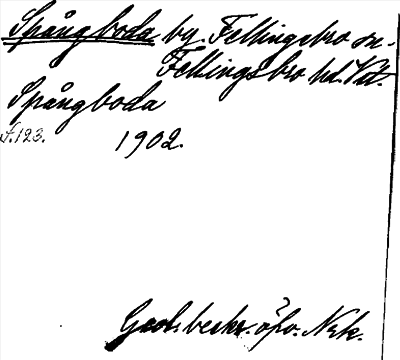 Spångboda by. Fellingsbro sn.
Fellingsbro hd. Vstl.
Spångboda
s. 123. 1902.
Geol. beskr. öfv. Nrk.